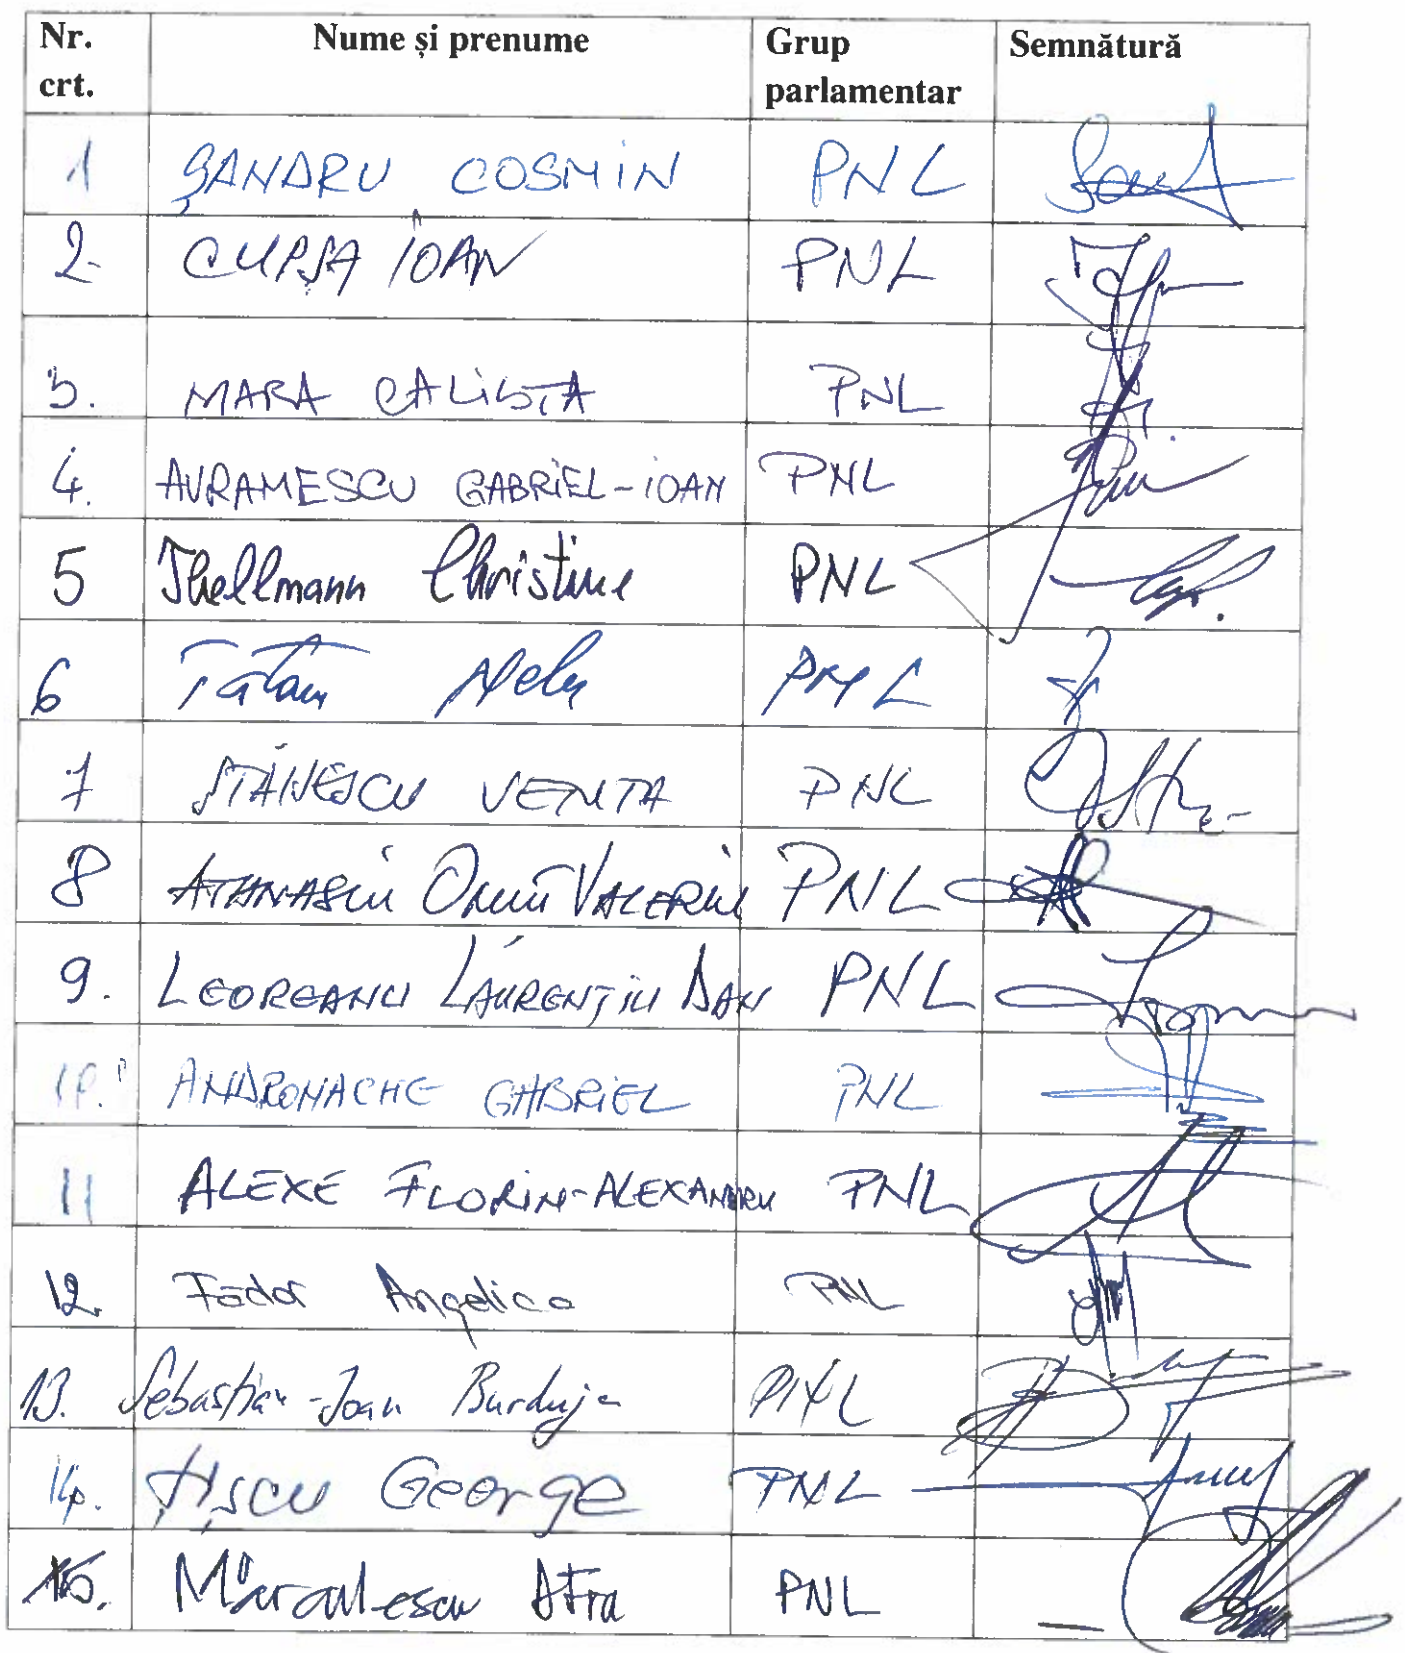 Nr. crt. Nume și prenume Grup parlamentar Semnătură
1 ȘANDRU COSMIN PNL
2. CUPȘA IOAN PNL
3. MARA CALISTA PNL
4. AVRAMESCU GABRIEL-IOAN PNL
5 Thellmann Christine PNL
6 Tătaru Nelu PNL
7 STĂNESCU VENTA PNL
8 ATANASIU VALERIU PNL
9. LEOREANU LAURENȚIU DAN PNL
10. ANDRONACHE GABRIEL PNL
11 ALEXE FLORIN-ALEXANDRU PNL
12. Fădor Angelica PNL
13. Sebastian-Ioan Burduja PNL
14. Țîșcu George PNL
15. PNL